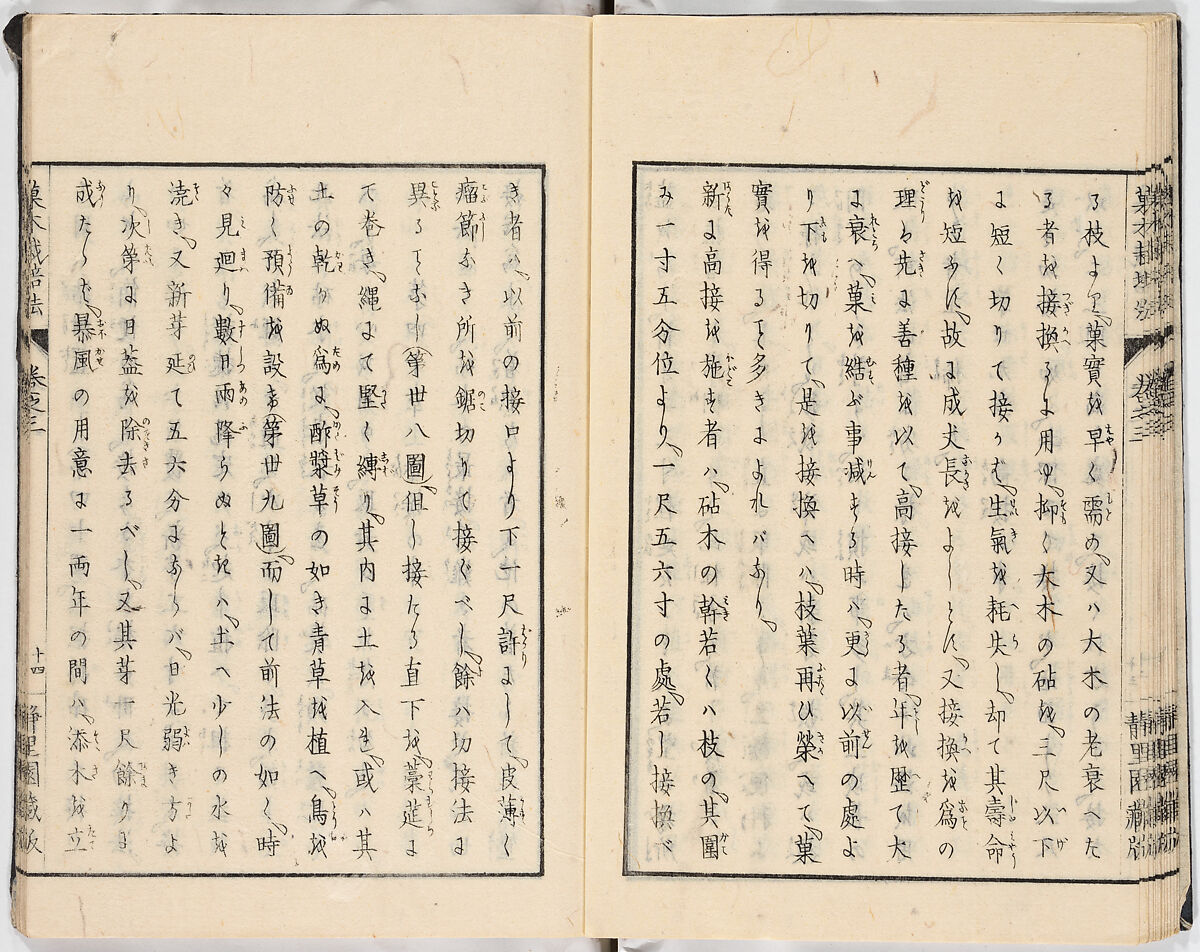 る枝より、菓實を早く需め、又ハ大木の老衰へた
る者を接換るに用ゆ、抑〻大木の砧を、三尺以下
に短く切りて接かば、生氣を耗失し、却て其壽命
を短少す、故に成丈長をよしとす、又接換を爲の
理ハ、先に善種を以て、高接したる者、年を歴て大
に衰へ、菓を結ぶ事減ずる時ハ、更に以前の處よ
り下を切りて、是を接換へハ、枝葉再び榮へて、菓
實を得ること多きによれバなり、
新に高接を施す者ハ、砧木の幹若くハ枝の、其圍
み一寸五分位より、一尺五六寸の處、若し接換べ
き者ハ、以前の接口より下一尺許にして、皮薄く
瘤節なき所を鋸切りて接ぐべし、餘ハ切接法に
異ることなし(第卅八圖)但し接たる直下を、藁莚に
て卷き、繩にて堅く縛り、其内に土を入れ、或ハ其
土の乾かぬ爲に、酢漿草の如き青草を植へ、鳥を
防ぐ預備を設ます(第卅九圖)而して前法の如く、時
々見廻り、數日雨降らぬときハ、土へ少しの水を
澆き、又新芽延て五六分にならバ、日光弱き方よ
り、次第に日蓋を除去るべし、又其芽一尺餘りに
成たらば、暴風の用意に一両年の間ハ、添木を立
菓木栽培法
卷之三
十四
靜里園藏版